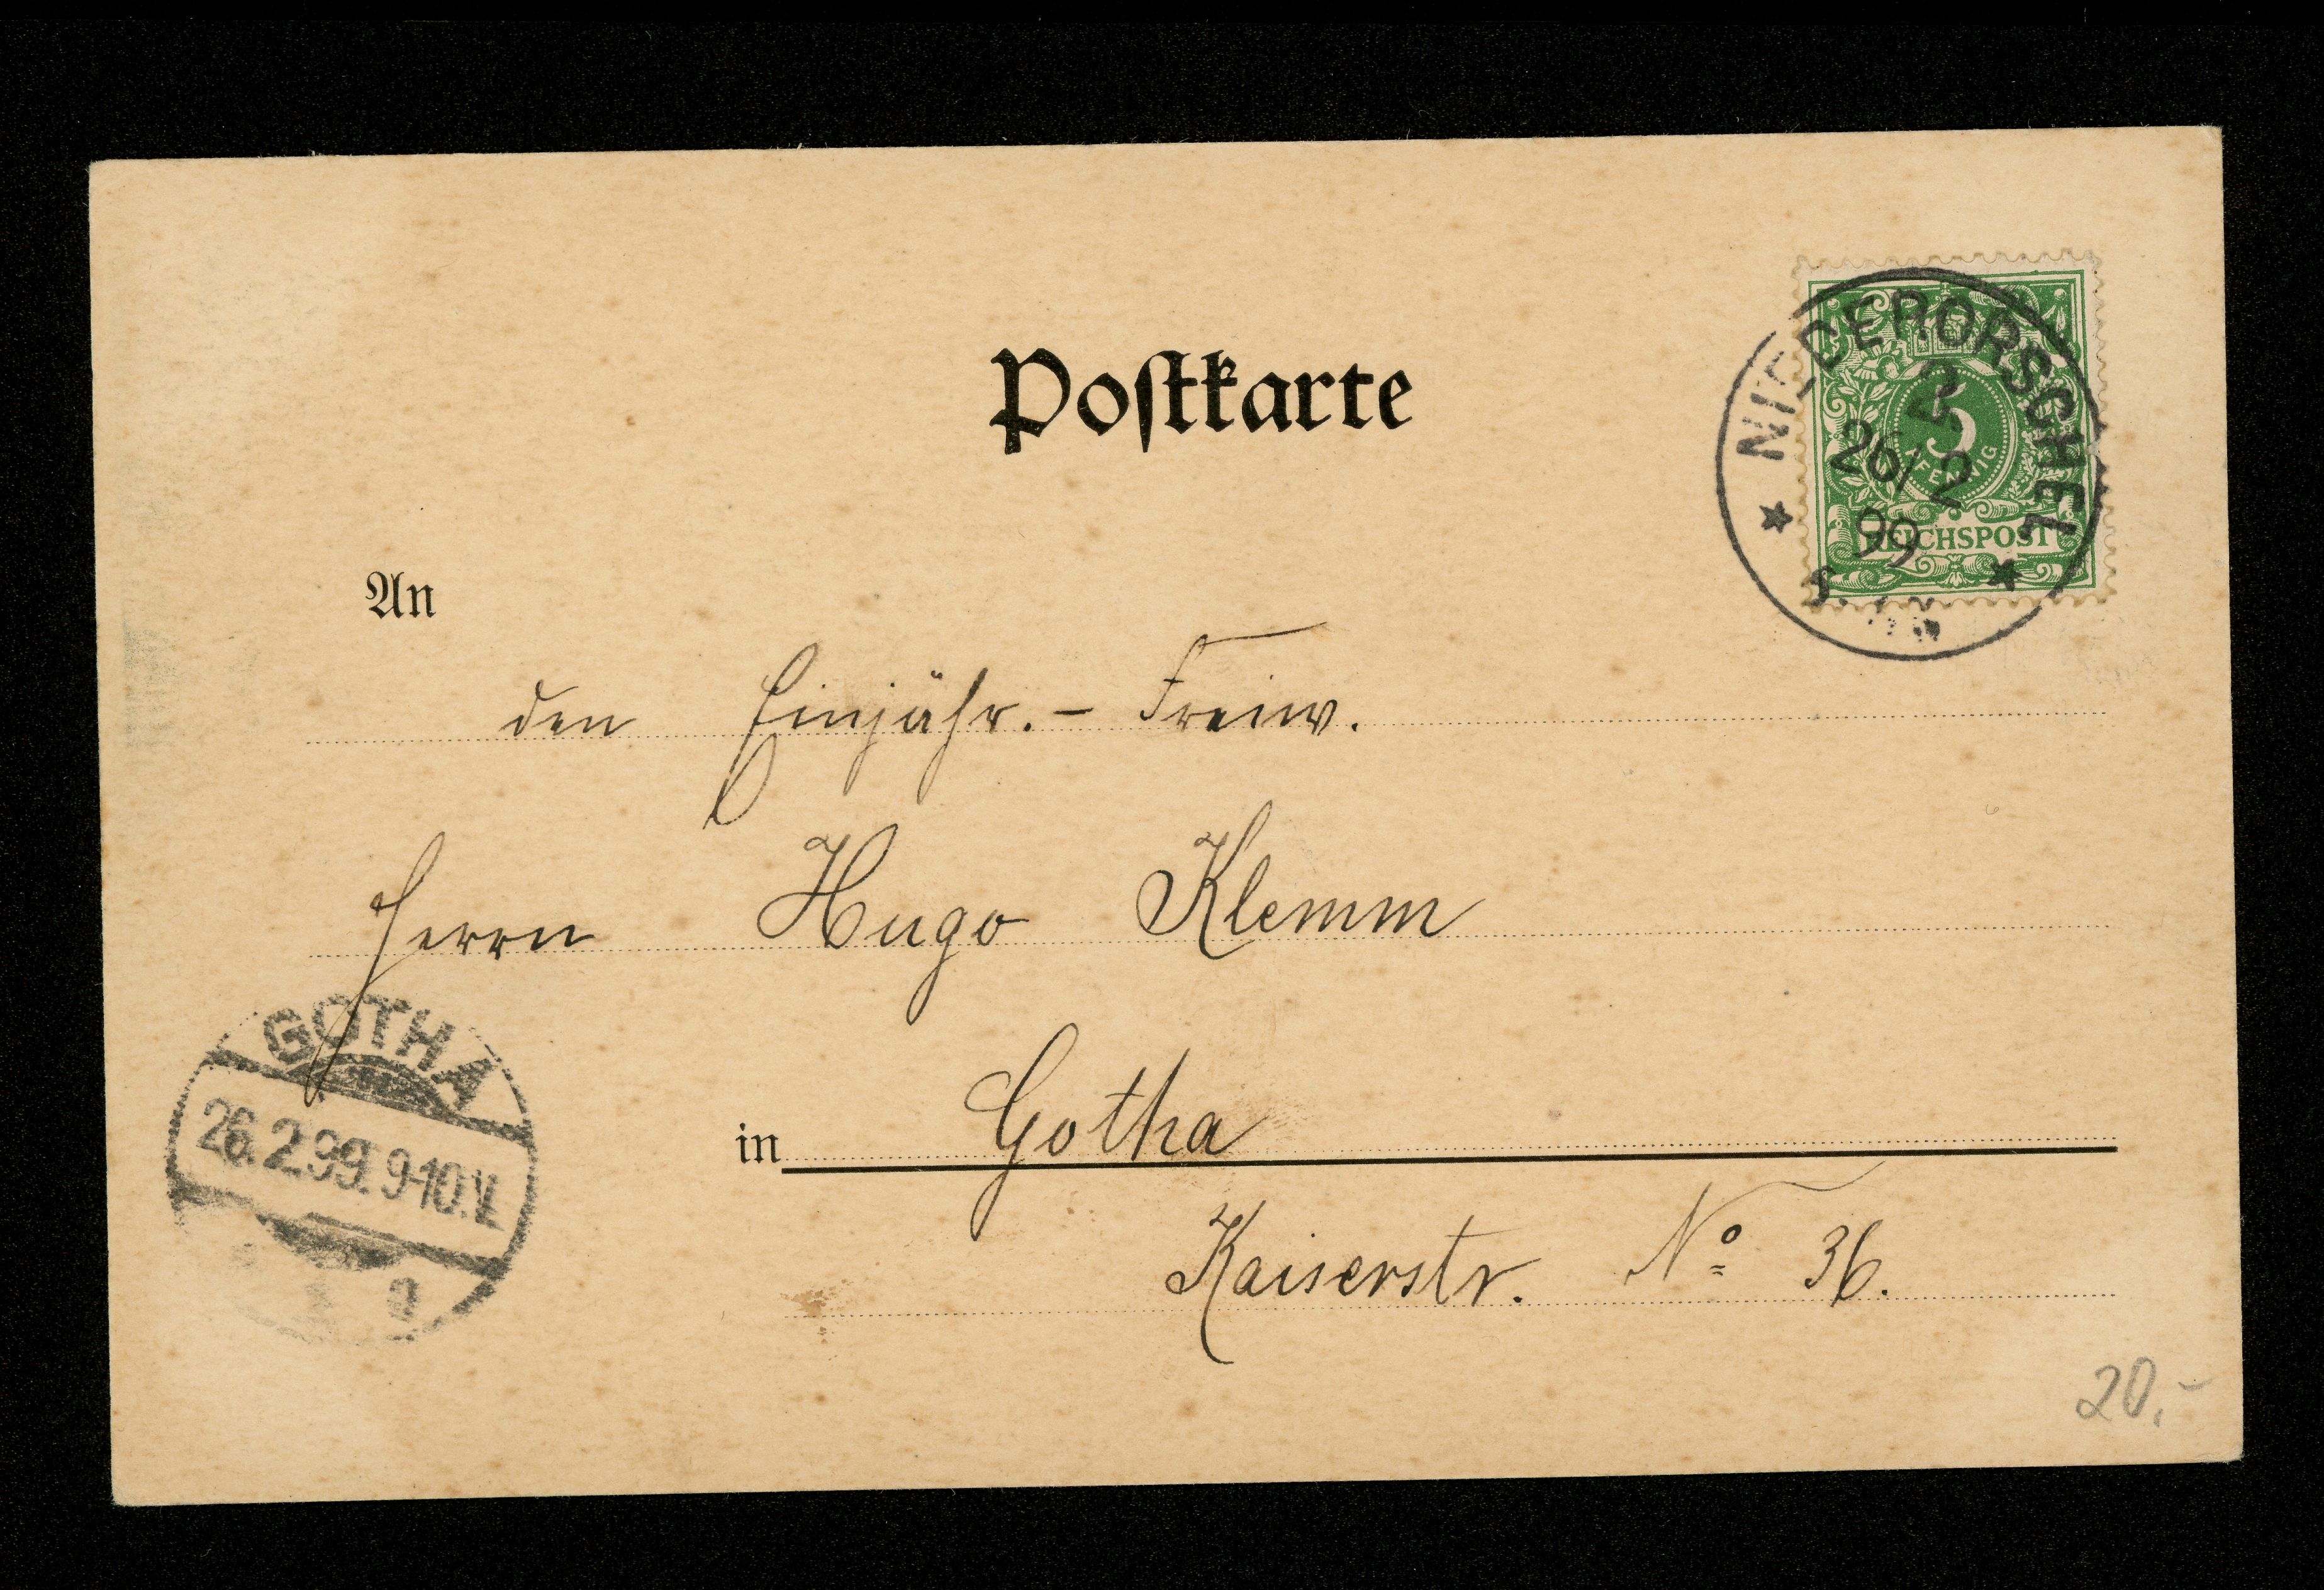 Postkarte
NIEDERORSCHEL
2.
26/2
99
5
PFENNIG
REICHSPOST
An
den Einjähr.- Freiw.
Herrn Hugo Klemm
in Gotha
Kaiserstr. No 36.
GOTHA
26.2.99. 9-10.V.
20,-